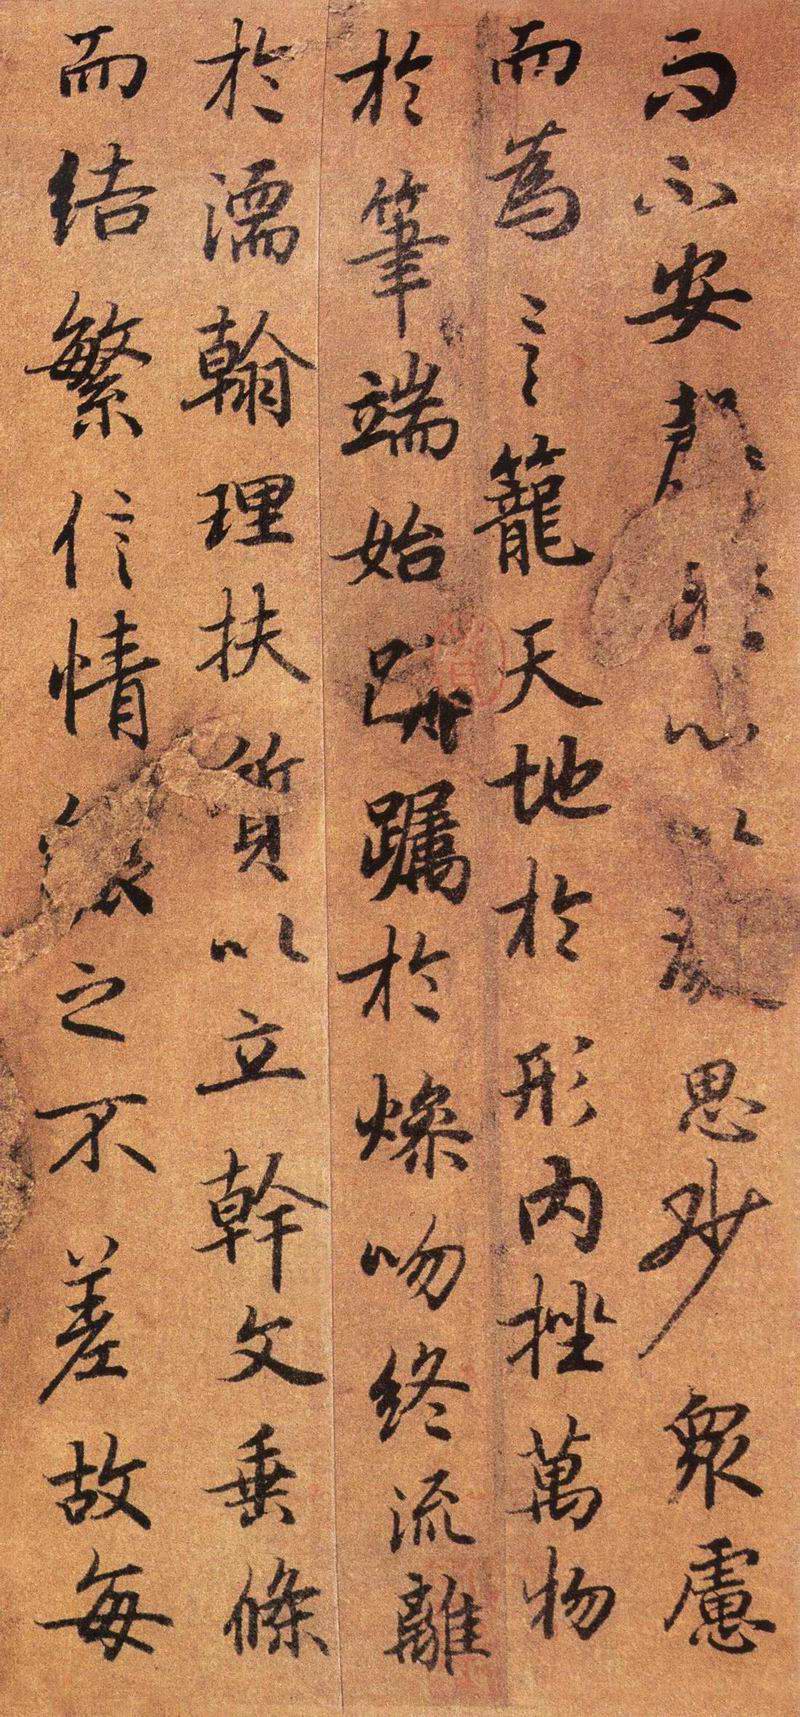 而不安罄心以思眇眾慮
而為言籠天地於形內挫萬物
於筆端始躑躅於燥吻終流離
於濡翰理扶質以立幹文垂條
而結繁信情之不差故每